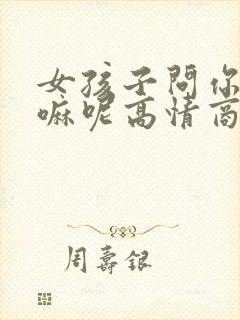 女孩子問你
嘛呢高情商
周壽銀